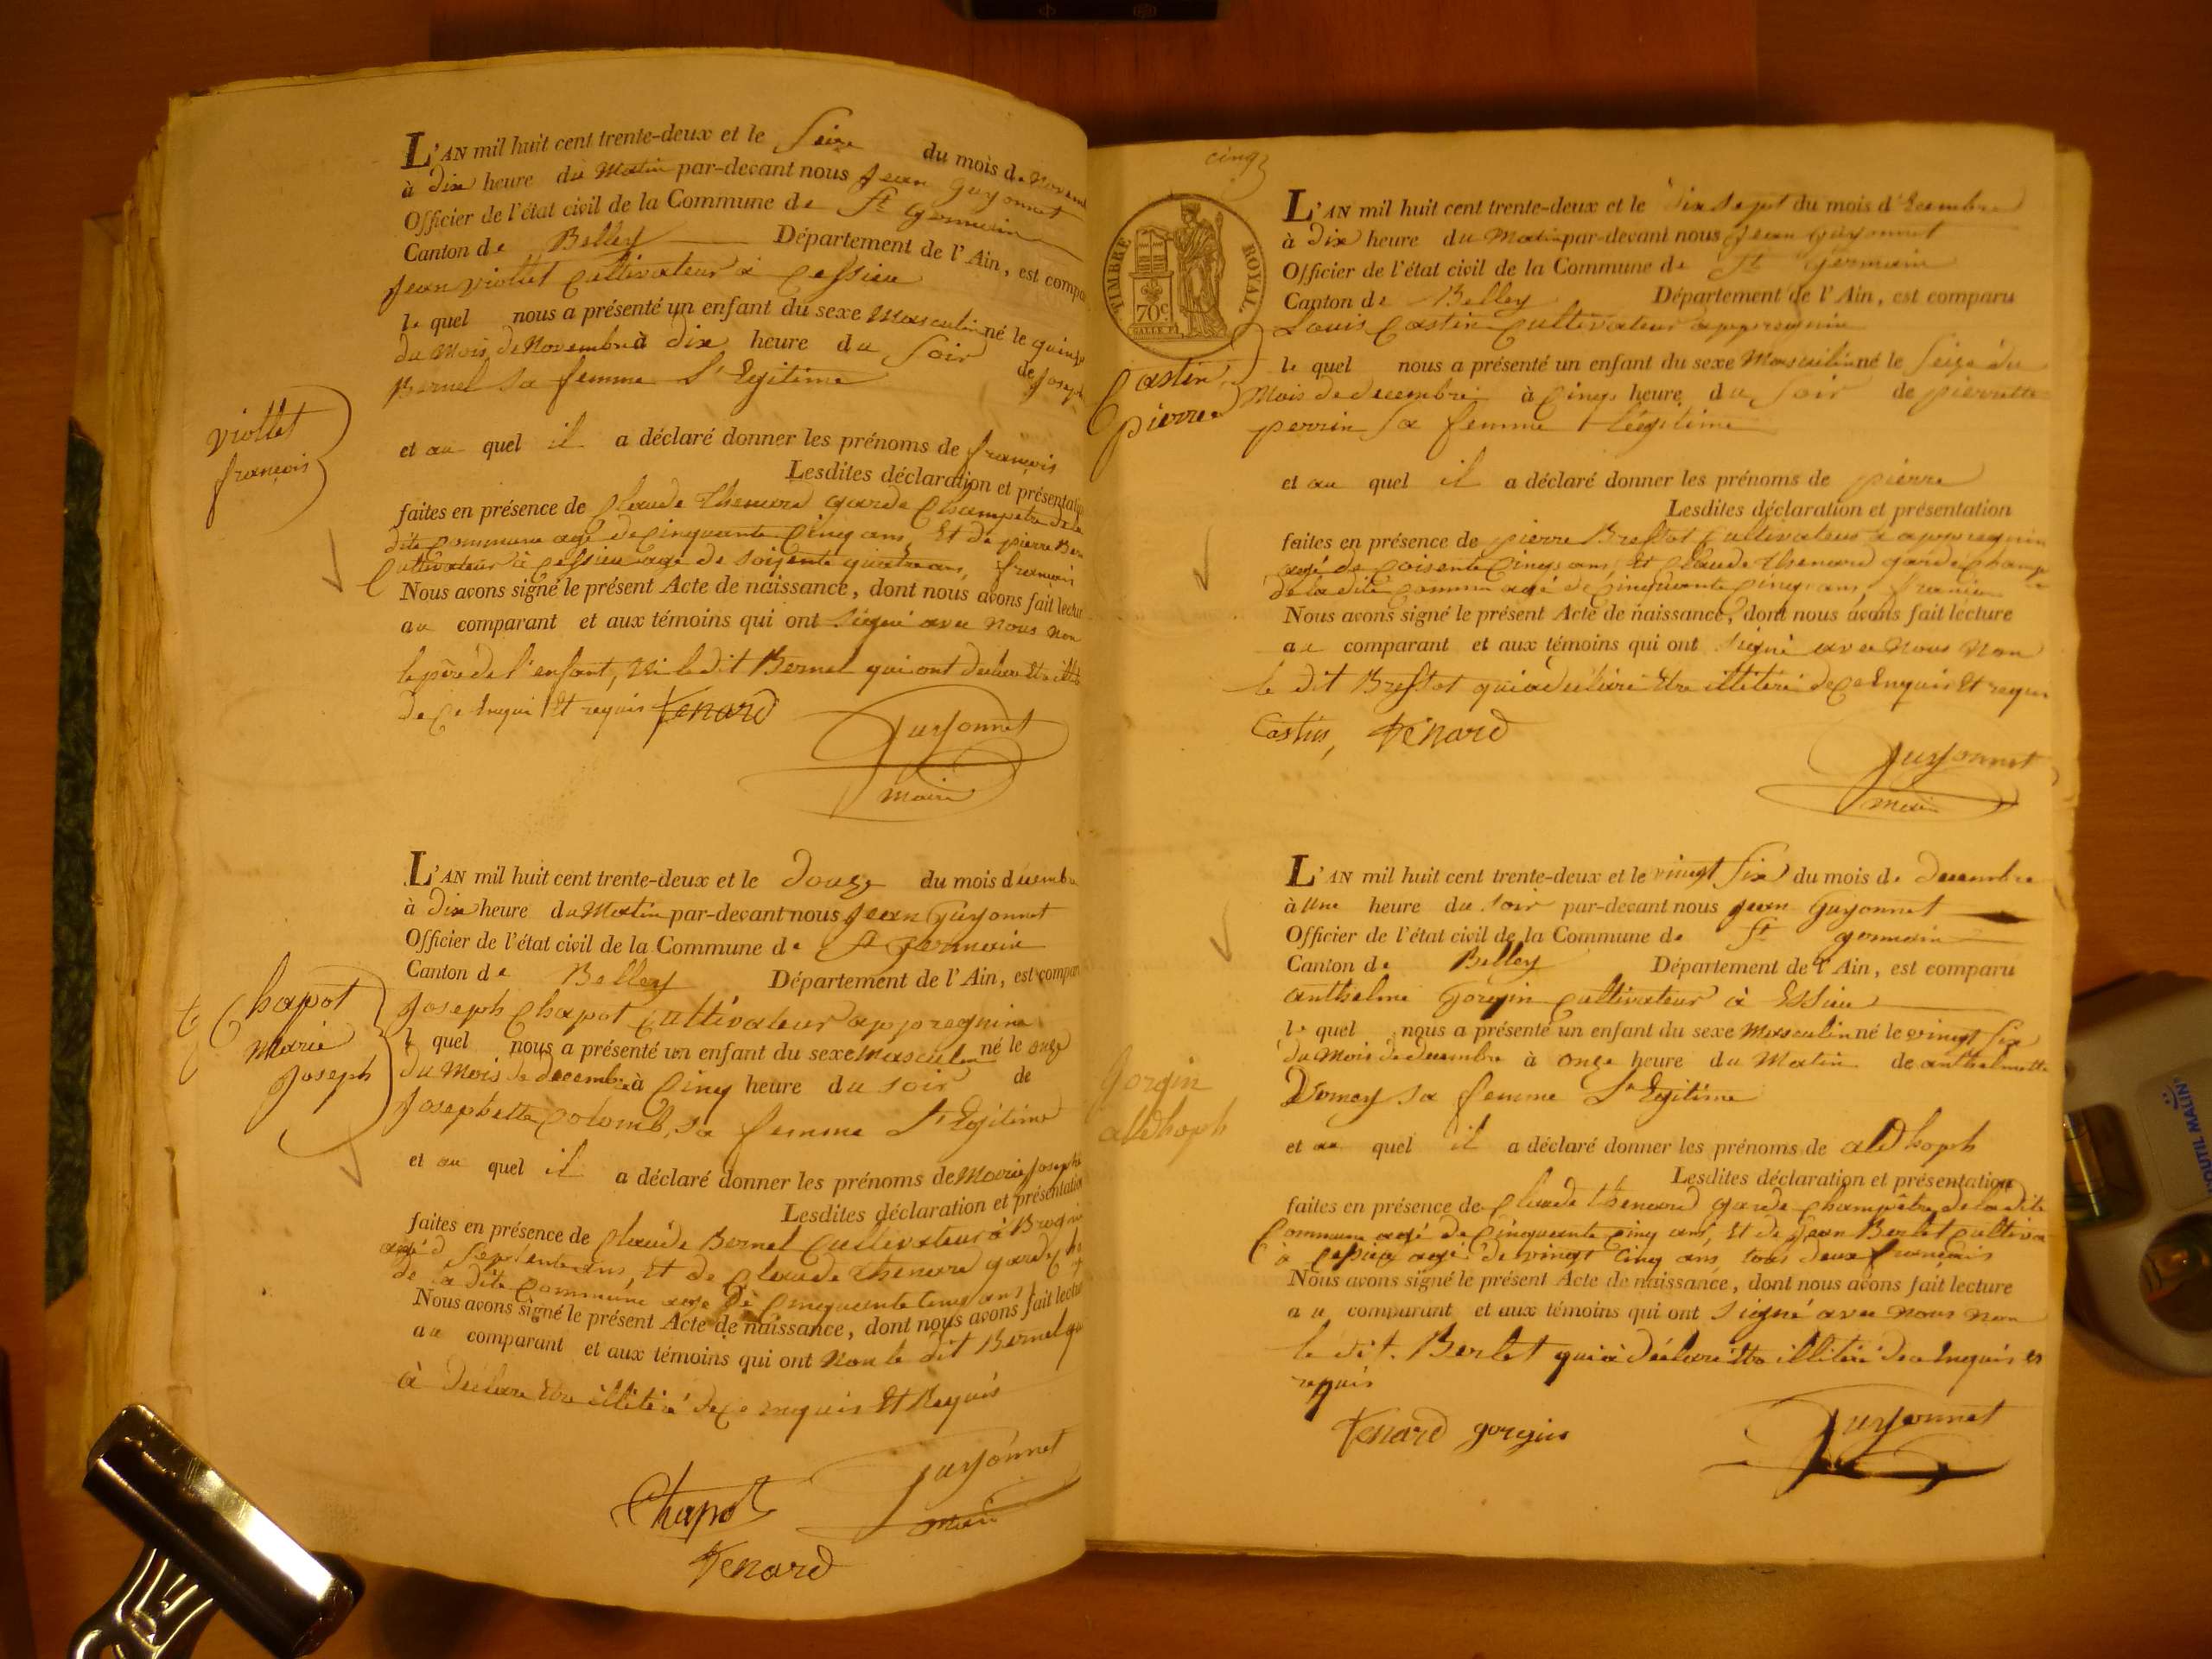 L'AN mil huit cent trente-deux et le seize du mois de Novem
à dix heure du Matin par-devant nous Jean Guyonnet
Officier de l'état civil de la Commune de St germain
Canton de Belley Département de l'Ain, est compa
Jean viollet Cultivateur à Cessieu
le quel nous a présenté un enfant du sexe Masculin né le quinze
du Mois de Novembre à dix heure du soir de Joseph
Bernel sa femme L'Egitime
viollet
françois
et au quel il a déclaré donner les prénoms de françois
Lesdites déclaration et présentatio
faites en présence de Claude thenard garde Champetre de la
dite Commune agé de Cinquante Cinq ans, Et de pierre Ber
Cultivateur à Cessieu agé de soixente quatre ans, français
Nous avons signé le présent Acte de naissance, dont nous avons fait lectur
au comparant et aux témoins qui ont signé avec nous non
le père de l'enfant, ni le dit Bernel qui ont déclaré
de Ce Enqui Et requis Tenard
Guyonnet
maire
L'AN mil huit cent trente-deux et le douze du mois décembre
à dix heure du Matin par-devant nous Jean Guyonnet
Officier de l'état civil de la Commune de St Germain
Canton de Belley Département de l'Ain, est compar
Chapot
Marie
Joseph
Joseph Chapot Cultivateur a ppregnin
le quel nous a présenté un enfant du sexe Masculin né le onze
du Mois de decembre à Cinq heure du soir de
Josephette Colomb, sa femme L'Egitime
et au quel il a déclaré donner les prénoms de Marie Joseph
Lesdites déclaration et présentation
faites en présence de Claude Bernel Cultivateur à
agé d Septente ans, Et de Claude thenard garde
de la dite Commune agé de Cinquante Cinq ans
Nous avons signé le présent Acte de naissance, dont nous avons fait lectur
au comparant et aux témoins qui ont Non le dit Bernel qu
à déclaré Etre illitéré de Ce enquis Et Requis
Guyonnet
Chapot
maire
Tenard
cinq
TIMBRE ROYAL
70c
L'AN mil huit cent trente-deux et le dix sept du mois d'Ecembre
à dix heure du Matin par-devant nous Jean Guyonnet
Officier de l'état civil de la Commune de St germain
Canton de Belley Département de l'Ain, est comparu
Louis Castin Cultivateur a ppregnin
Castin
pierre
le quel nous a présenté un enfant du sexe Masculin né le seize du
Mois de decembre à Cinq heure du soir de pierrette
perrin sa femme légitime
et au quel il a déclaré donner les prénoms de pierre
Lesdites déclaration et présentation
faites en présence de pierre Bressot Cultivateur a appregnin
agé de soisente Cinq ans Et Claude thenard garde Champ
de la dite Commune agé de Cinquante Cinq ans,
Nous avons signé le présent Acte de naissance, dont nous avons fait lecture
au comparant et aux témoins qui ont signé avec nous non
le dit Bressot qui a déclaré Etre illitéré de Ce Enquis Et requi
Castin, Tenard
Guyonnet
maire
L'AN mil huit cent trente-deux et le vingt six du mois de decembre
à une heure du soir par-devant nous Jean Guyonnet
Officier de l'état civil de la Commune de St germain
Canton de Belley Département de l'Ain, est comparu
anthelme Gorgin Cultivateur à Essieu
le quel nous a présenté un enfant du sexe Masculin né le vingt six
du Mois de decembre à onze heure du Matin de anthelmette
Gorgin
aldhoph
Dornay sa femme L'Egitime
et au quel il a déclaré donner les prénoms de aldhoph
Lesdites déclaration et présentation
faites en présence de Claude thenard garde Champêtre de la dite
Commune agé de Cinquante Cinq ans, Et de Jean Berlet Cultiva
à Cessieu agé de vingt Cinq ans, tous deux français
Nous avons signé le présent Acte de naissance, dont nous avons fait lecture
au comparant et aux témoins qui ont Signé avec nous non
le dit. Berlet qui à déclaré Etre illitéré de Ce Enquis et
requis
Tenard gorgin
Guyonnet
L'OUTIL MALIN